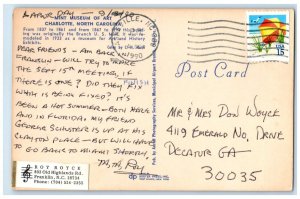 LABOR DAY - 9/
MINT MUSEUM OF ART
CHARLOTTE, NORTH CAROLINA
From 1837 to 1861 and from 1867 to
ing was originally the Branch U.S. Mint
modeled in 1933 as a museum for Art and History
Exhibits.
1990
USA
DEAR FRIENDS - AM BACK IN
FRANKLIN - WILL TRY TO MAKE
THE SEPT 15TH MEETING, IF
THERE IS ONE? DID THEY FIX
WITH IS BEING FIXED? IT'S
BEEN A HOT SUMMER - BOTH HERE
AND IN FLORIDA, MY FRIEND
GEORGE SHUSTER IS UP AT HIS
CLAYTON PLACE - BUT WILL HAVE
TO GO BACK TO MIAMI SHORTLY.
Roy
Post Card
MR & MRS DON WOYCK
4119 EMERALD NO. DRIVE
DECATUR GA-
30035
ROY ROYCE
462 Old Highlands Rd.
Franklin, N.C. 28734
Phone: (704) 524-2352
dp